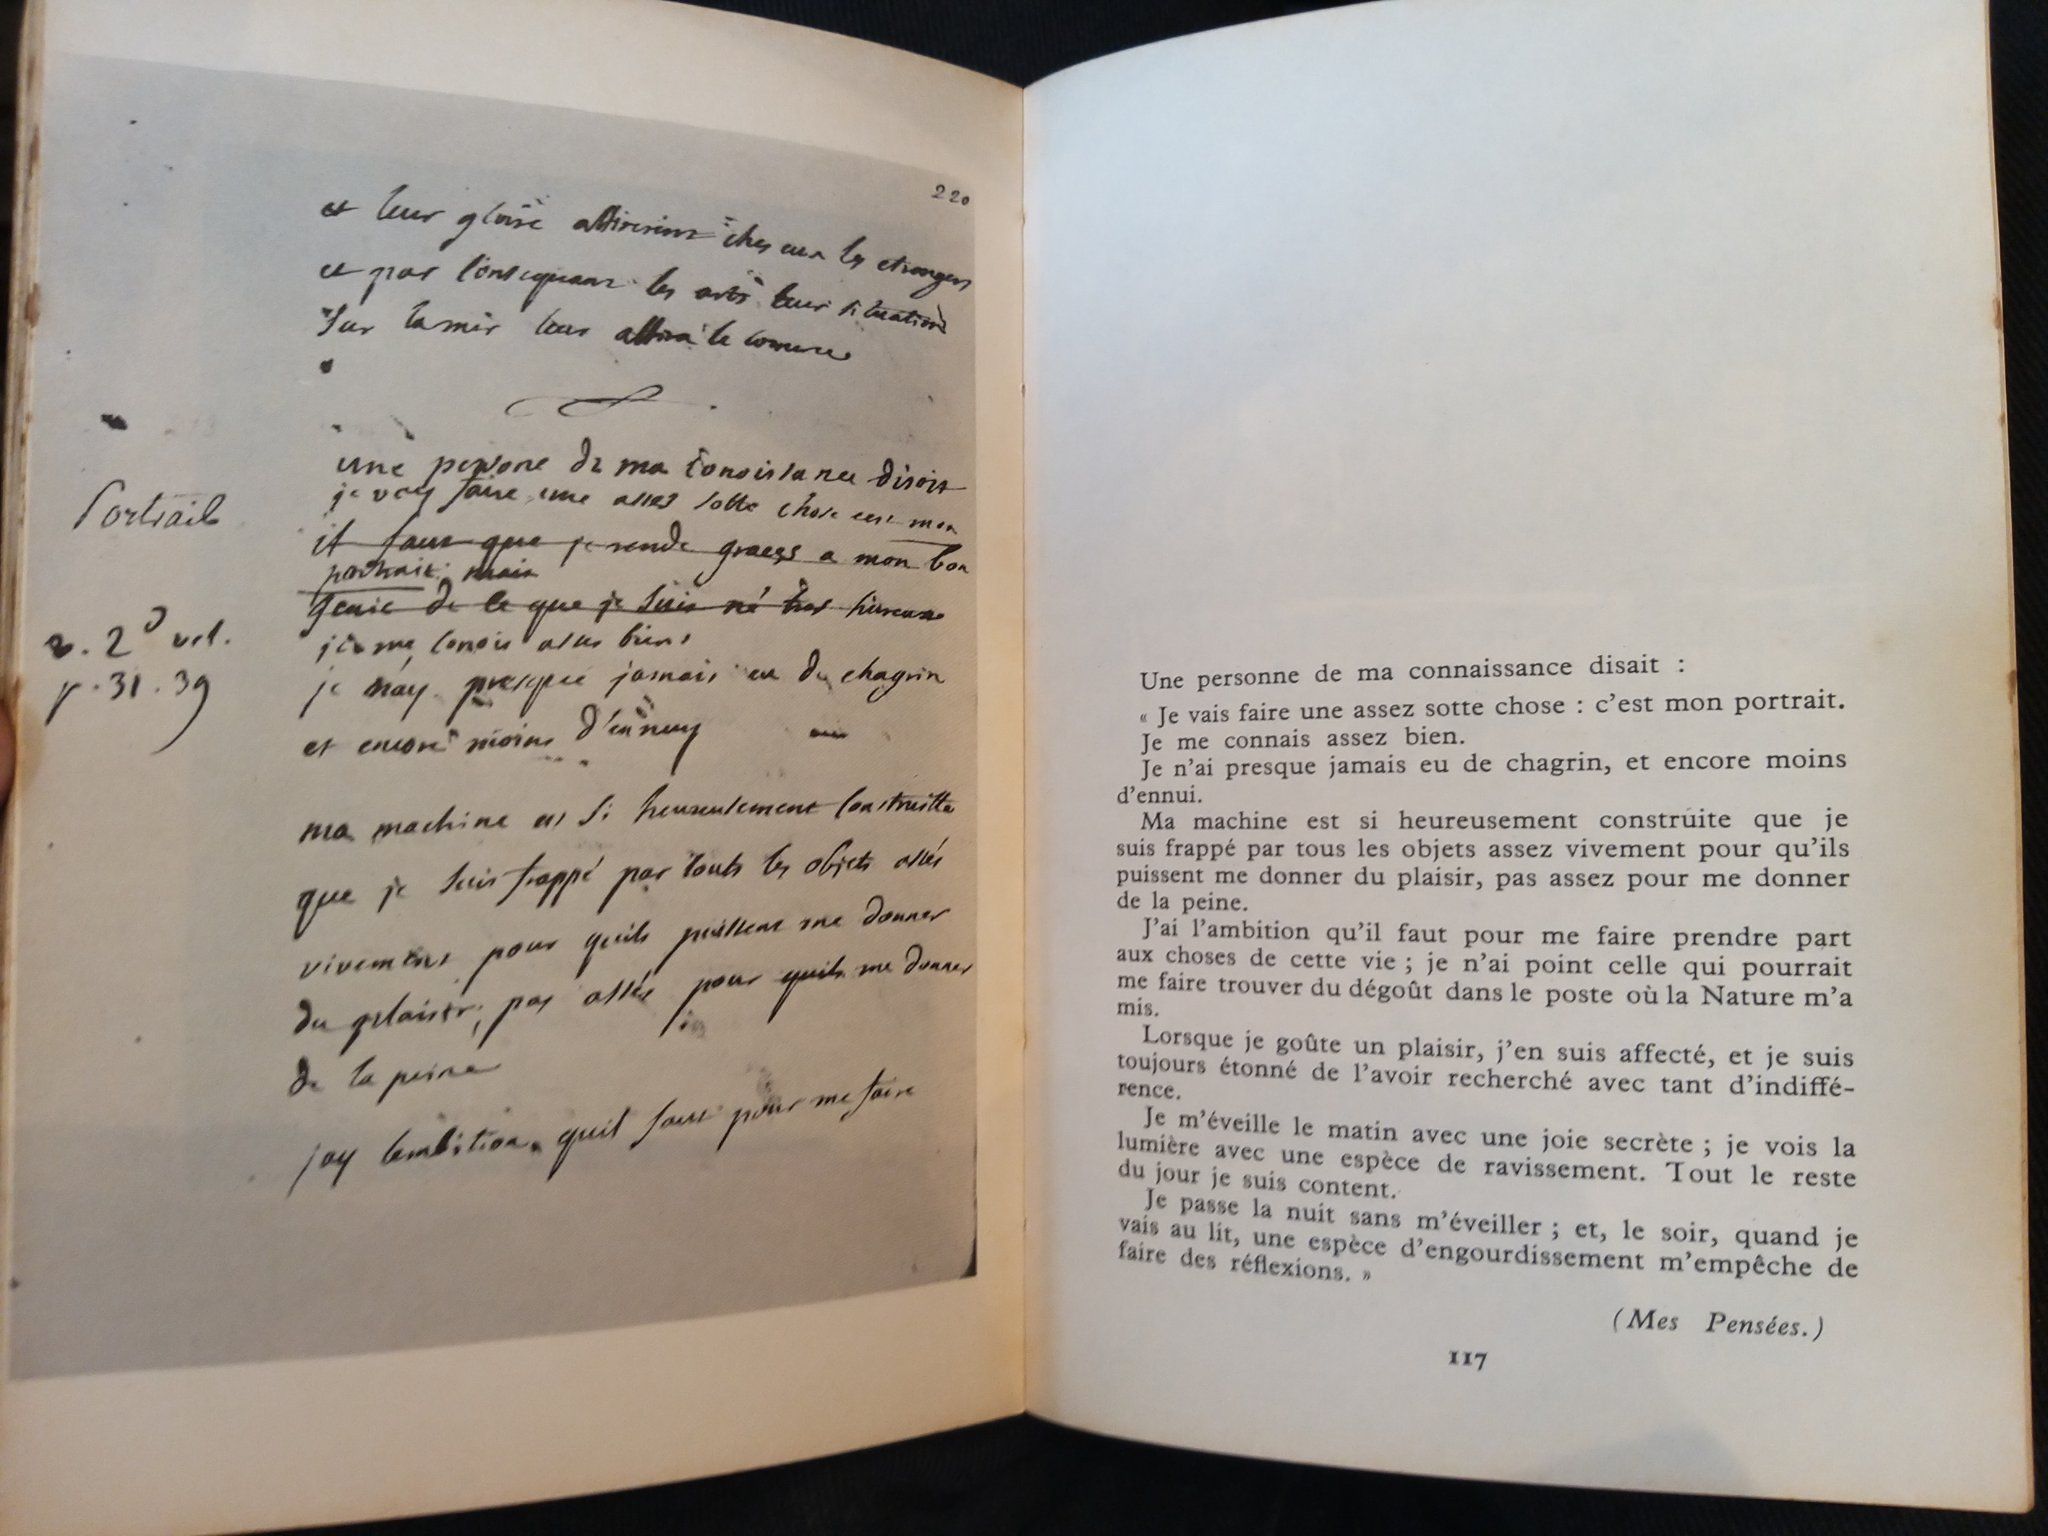 220
et leur gloire attirerent ches eux les etrangers
et par consequent les arts leur situation
sur la mer leur attira le comerce
une persone de ma conoissance disoit
je vay faire une assez sotte chose cest mon
Portrait
il faut que je rende graces a mon bon
portrait mais
genie de ce que je suis né tres hureux
v. 2º vol.
je me conois asses bien
p. 31. 39
je n'ay presque jamais eu du chagrin
et encore moins d'ennuy
ma machine est si heureusement construitte
que je suis frappé par touts les objets assés
vivement pour quils puissent me donner
du plaisir, pas assés pour quils me donner
de la peine
jay lambition quil faut pour me faire
Une personne de ma connaissance disait :
« Je vais faire une assez sotte chose : c'est mon portrait.
Je me connais assez bien.
Je n'ai presque jamais eu de chagrin, et encore moins
d'ennui.
Ma machine est si heureusement construite que je
suis frappé par tous les objets assez vivement pour qu'ils
puissent me donner du plaisir, pas assez pour me donner
de la peine.
J'ai l'ambition qu'il faut pour me faire prendre part
aux choses de cette vie ; je n'ai point celle qui pourrait
me faire trouver du dégoût dans le poste où la Nature m'a
mis.
Lorsque je goûte un plaisir, j'en suis affecté, et je suis
toujours étonné de l'avoir recherché avec tant d'indiffé-
rence.
Je m'éveille le matin avec une joie secrète ; je vois la
lumière avec une espèce de ravissement. Tout le reste
du jour je suis content.
Je passe la nuit sans m'éveiller ; et, le soir, quand je
vais au lit, une espèce d'engourdissement m'empêche de
faire des réflexions. »
(Mes Pensées.)
117